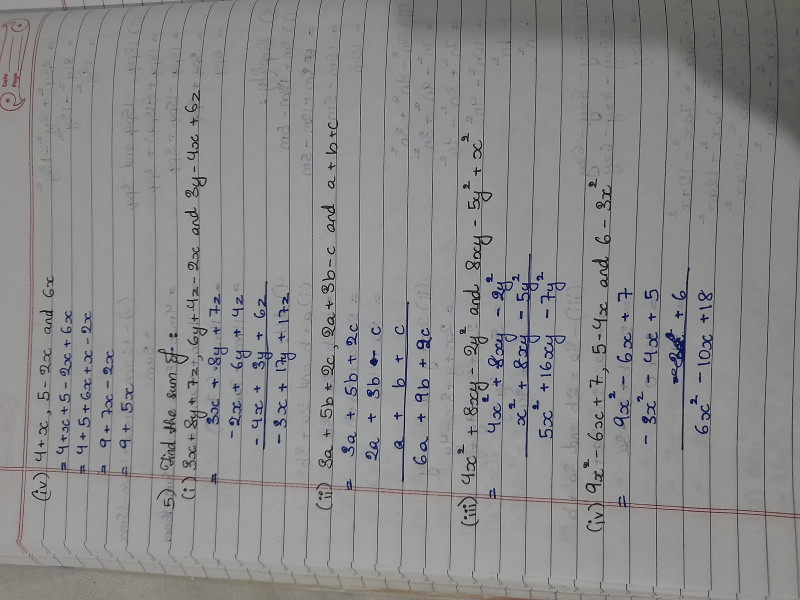 Date
Page
(iv) 4+x, 5-2x and 6x
= 4+x+5-2x+6x
= 4+5+6x+x-2x
= 9+7x-2x
= 9+5x
5) Find the sum of :
(i) 3x+8y+7z, 6y+4z-2x and 3y-4x+6z
= 3x + 8y + 7z
-2x + 6y + 4z
-4x + 3y + 6z
-3x + 17y + 17z
(ii) 3a+5b+2c, 2a+3b-c and a+b+c
= 3a + 5b + 2c
2a + 3b - c
a + b + c
6a + 9b + 2c
(iii) 4x² + 8xy - 2y² and 8xy - 5y² + x²
= 4x² + 8xy - 2y²
x² + 8xy - 5y²
5x² + 16xy - 7y²
(iv) 9x² - 6x + 7, 5-4x and 6-3x²
= 9x² - 6x + 7
-3x² - 4x + 5
+ 6
6x² - 10x + 18